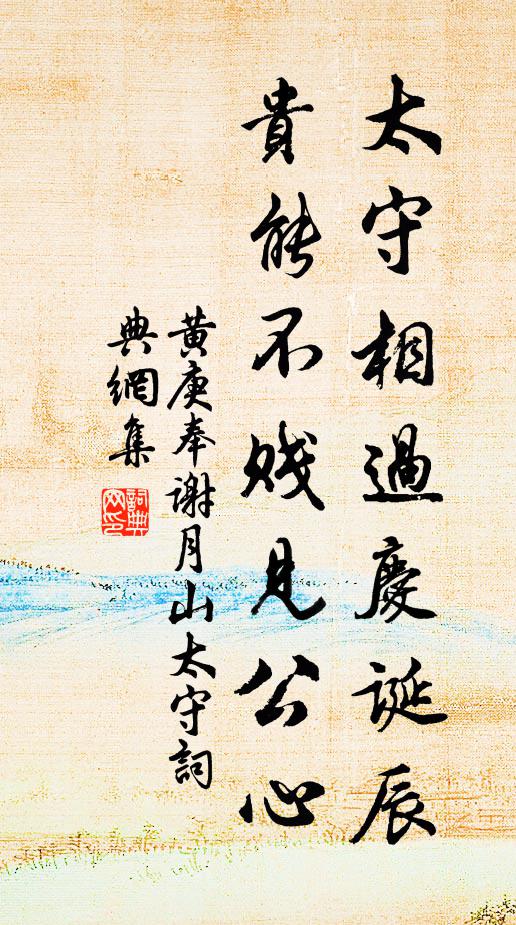 太守相過慶誕辰
貴能不賤見公心
黃庚奉謝月山太守詞
典網集
詞典網印